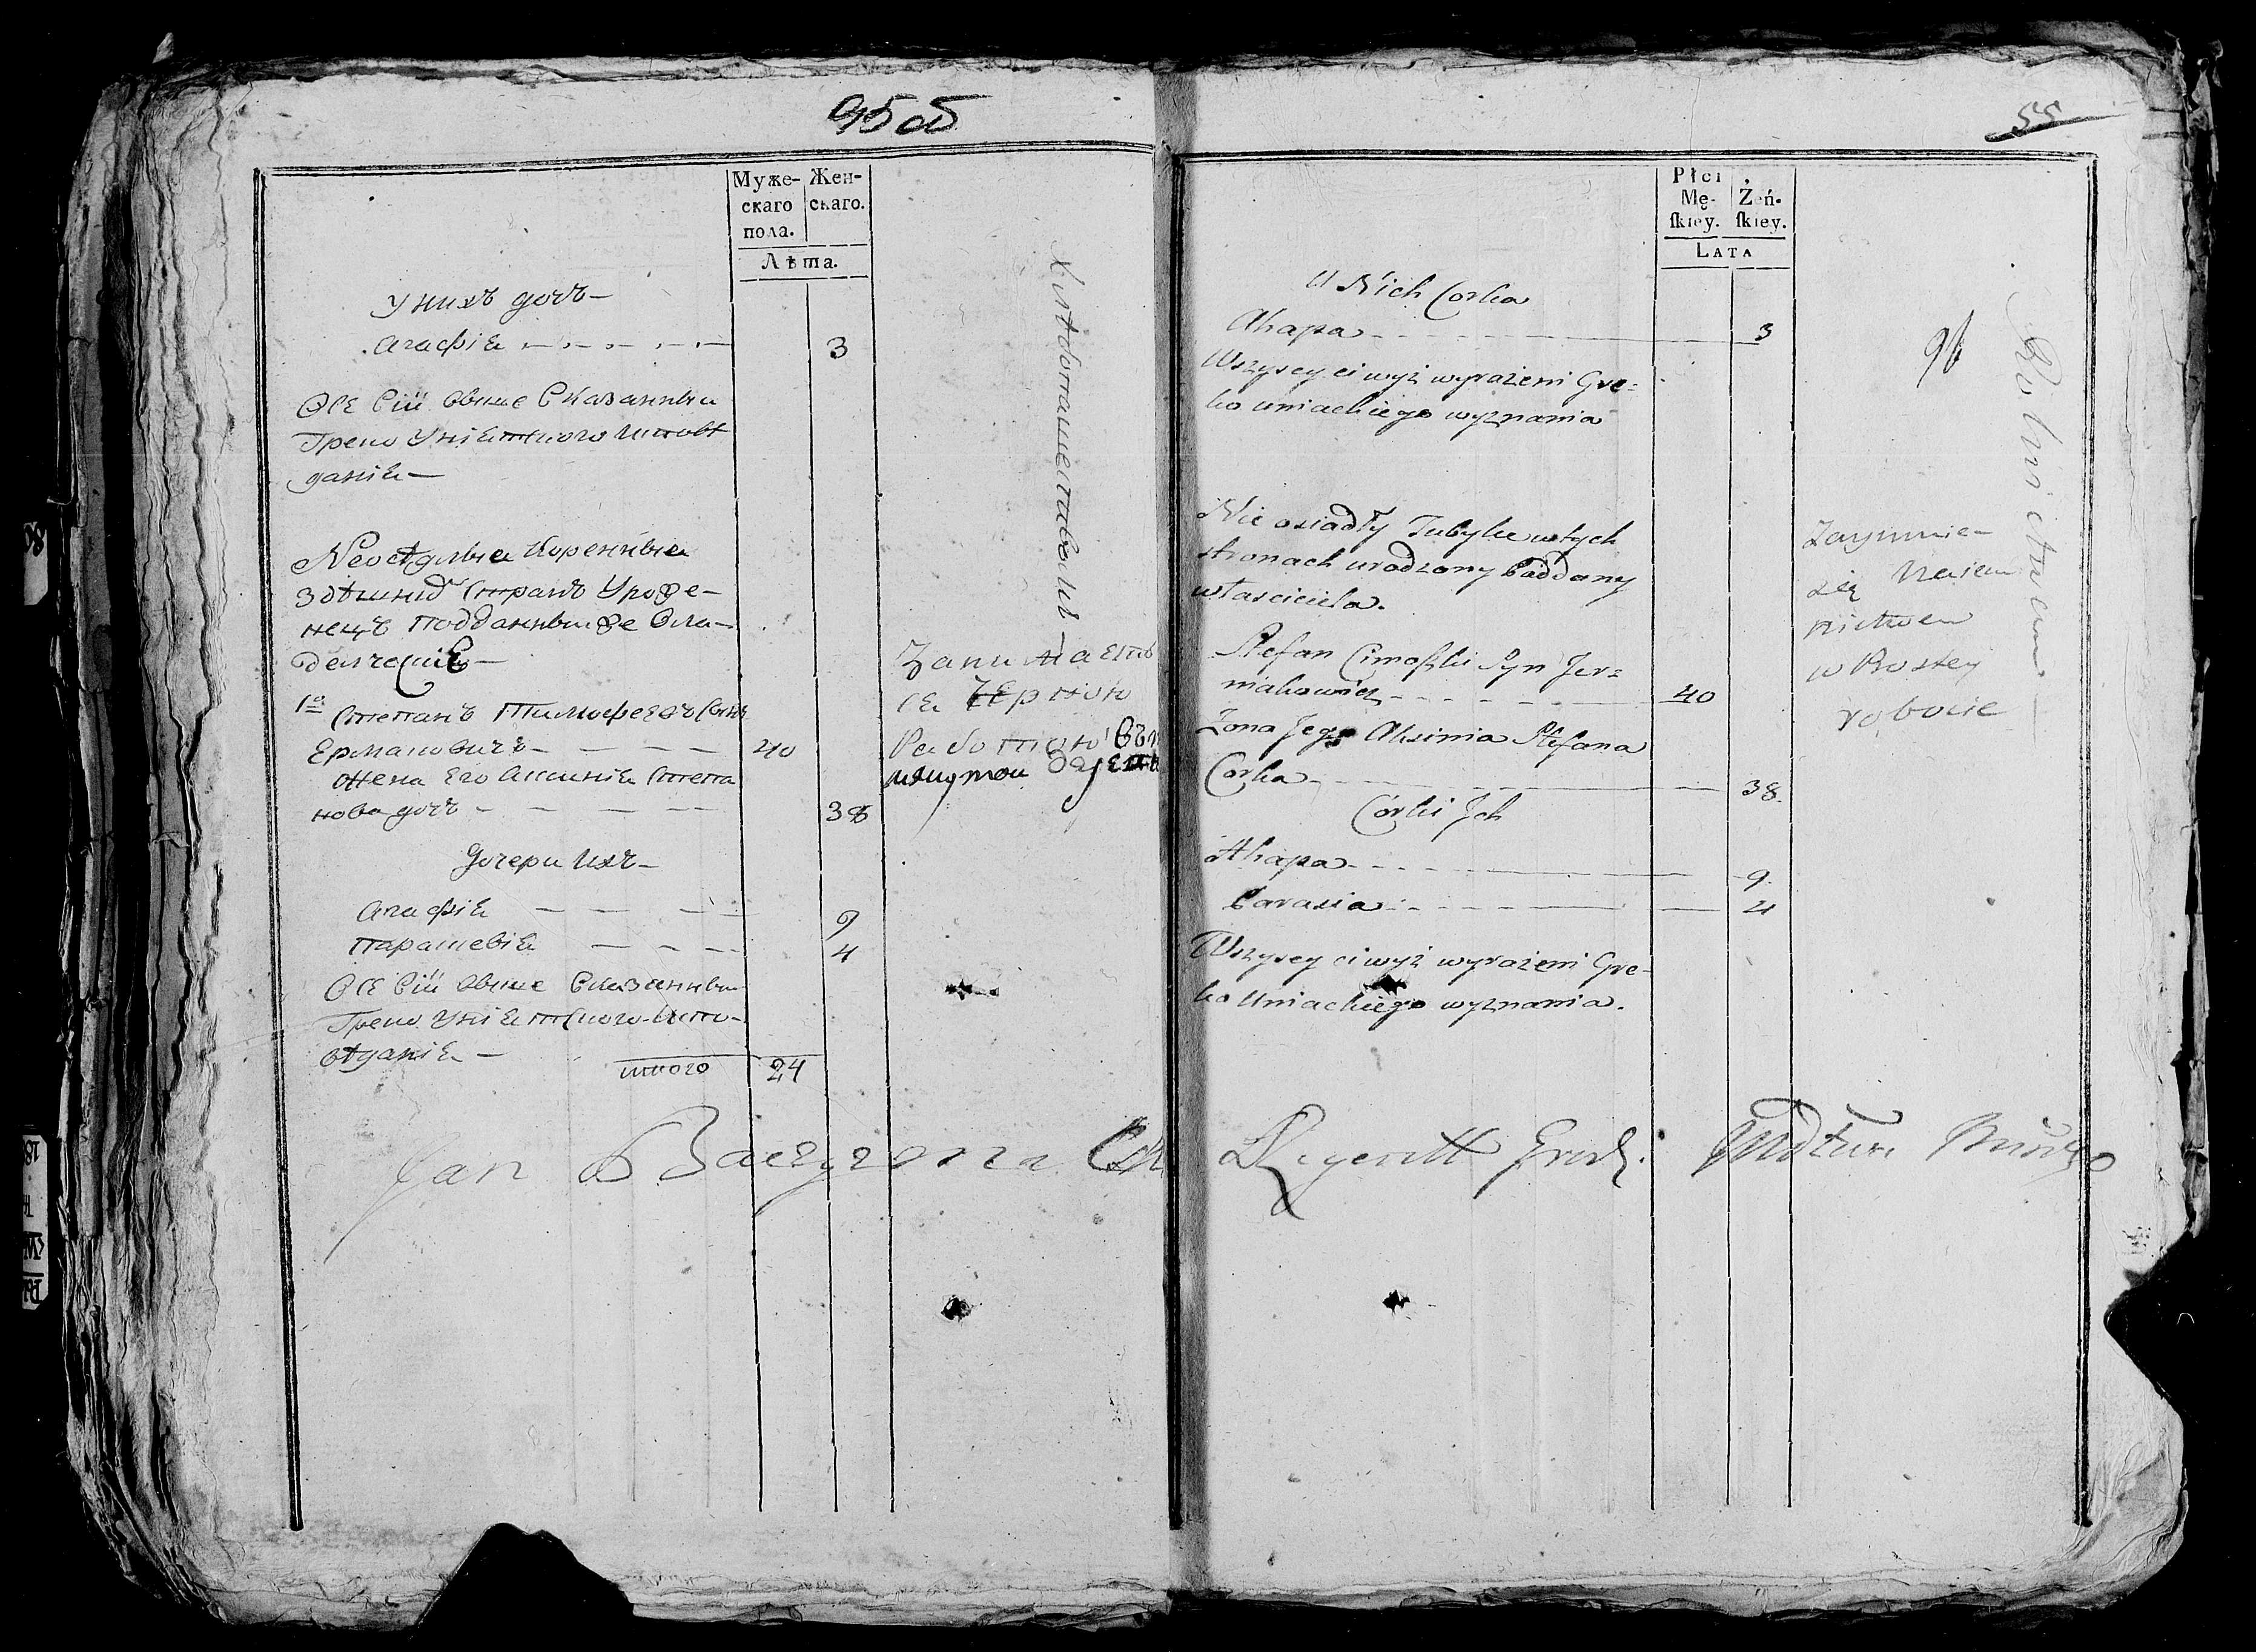 95об
Муже-
скаго
пола.
Жен-
скаго.
Лѣта.
У нихъ дочь —
Агафія
3
Все Сіи Свыше Сказанныи
Греко Уніятского Исповѣ
данія —
Неосѣдлыя Коренныя
здѣшнид Странъ Уроже-
нецъ Подданныи же Вла-
делческіе —
1е
Степанъ Тимофеевъ Сынъ
Ермаковичъ —
40
Жена Его Аксинія Степа
нова дочь —
38
Дочери Ихъ —
Агафія
9
Парасчевія
4
Все Сіи Свыше Сказанныи
Греко Уніятского Испо-
вѣданія —
итого
24
Хлебопашествомъ —
Занимаеть
ся Черною
Работою
Jan
55
Płci
Mę-
ſkiey.
Żeń-
ſkiey.
LATA
U Nich Corka
Ahapa
3
Wszyscy ci wyż wyrażeni Gre=
ko uniackiego wyznania
96
Rolnictwem —
Nie osiadły Tubylec w tych
stronach urodzony Poddany
własciciela.
Stefan Cimoszki Syn Jer=
makowicz
40
Zona Jego Aksinia Stefana
Corka
38.
Corki Jch
Ahapa
9.
Parasia
4
Wszyscy ci wyż wyrażeni Gre-
ko Uniackiego wyznania.
Zaymuie-
się
w Prostey
robocie
Regentt Grodz.